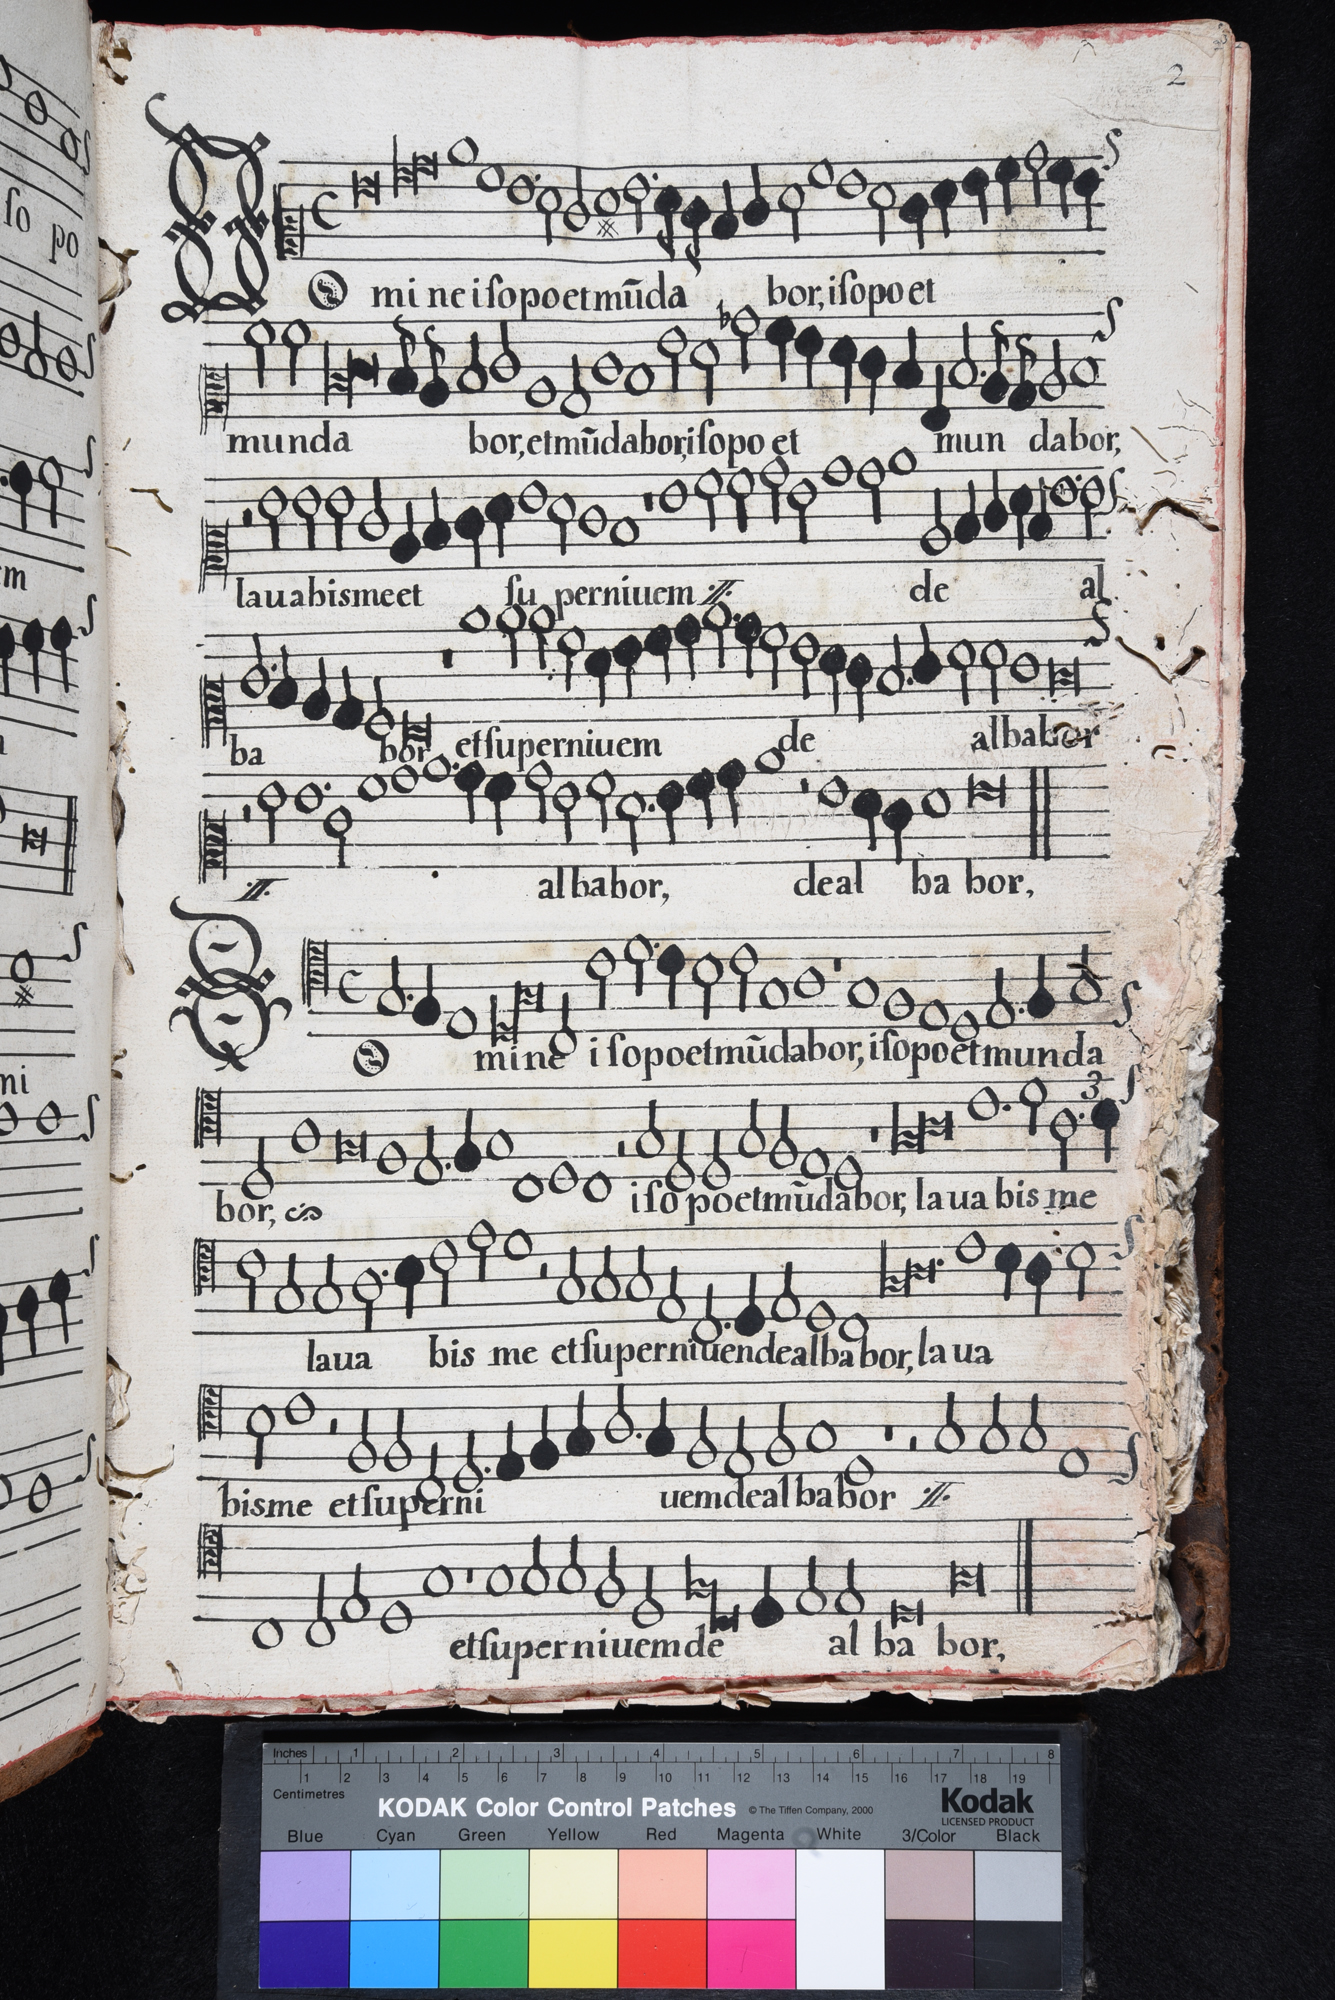 2
DO mi ne i ſo po et mũ da bor, i ſo po et
mun da bor, et mũ da bor, i ſo po et mun da bor,
laua bis me et ſu per niuem ij. de al
ba bor et ſuper niuem de al ba bor
ij. al ba bor, de al ba bor,
DO mi ne i ſo po et mũ da bor, i ſo po et mun da
bor, i ſo po et mũ da bor, la ua bis me
laua bis me et ſu per ni uen de al ba bor, la ua
bis me et ſu per ni uem de al ba bor ij.
3
et ſu per ni uem de al ba bor,
ſo po
em
mi
Inches 1 2 3 4 5 6 7 8
1 2 3 4 5 6 7 8 9 10 11 12 13 14 15 16 17 18 19
Centimetres
KODAK Color Control Patches © The Tiffen Company, 2000
Kodak
LICENSED PRODUCT
Blue Cyan Green Yellow Red Magenta White 3/Color Black